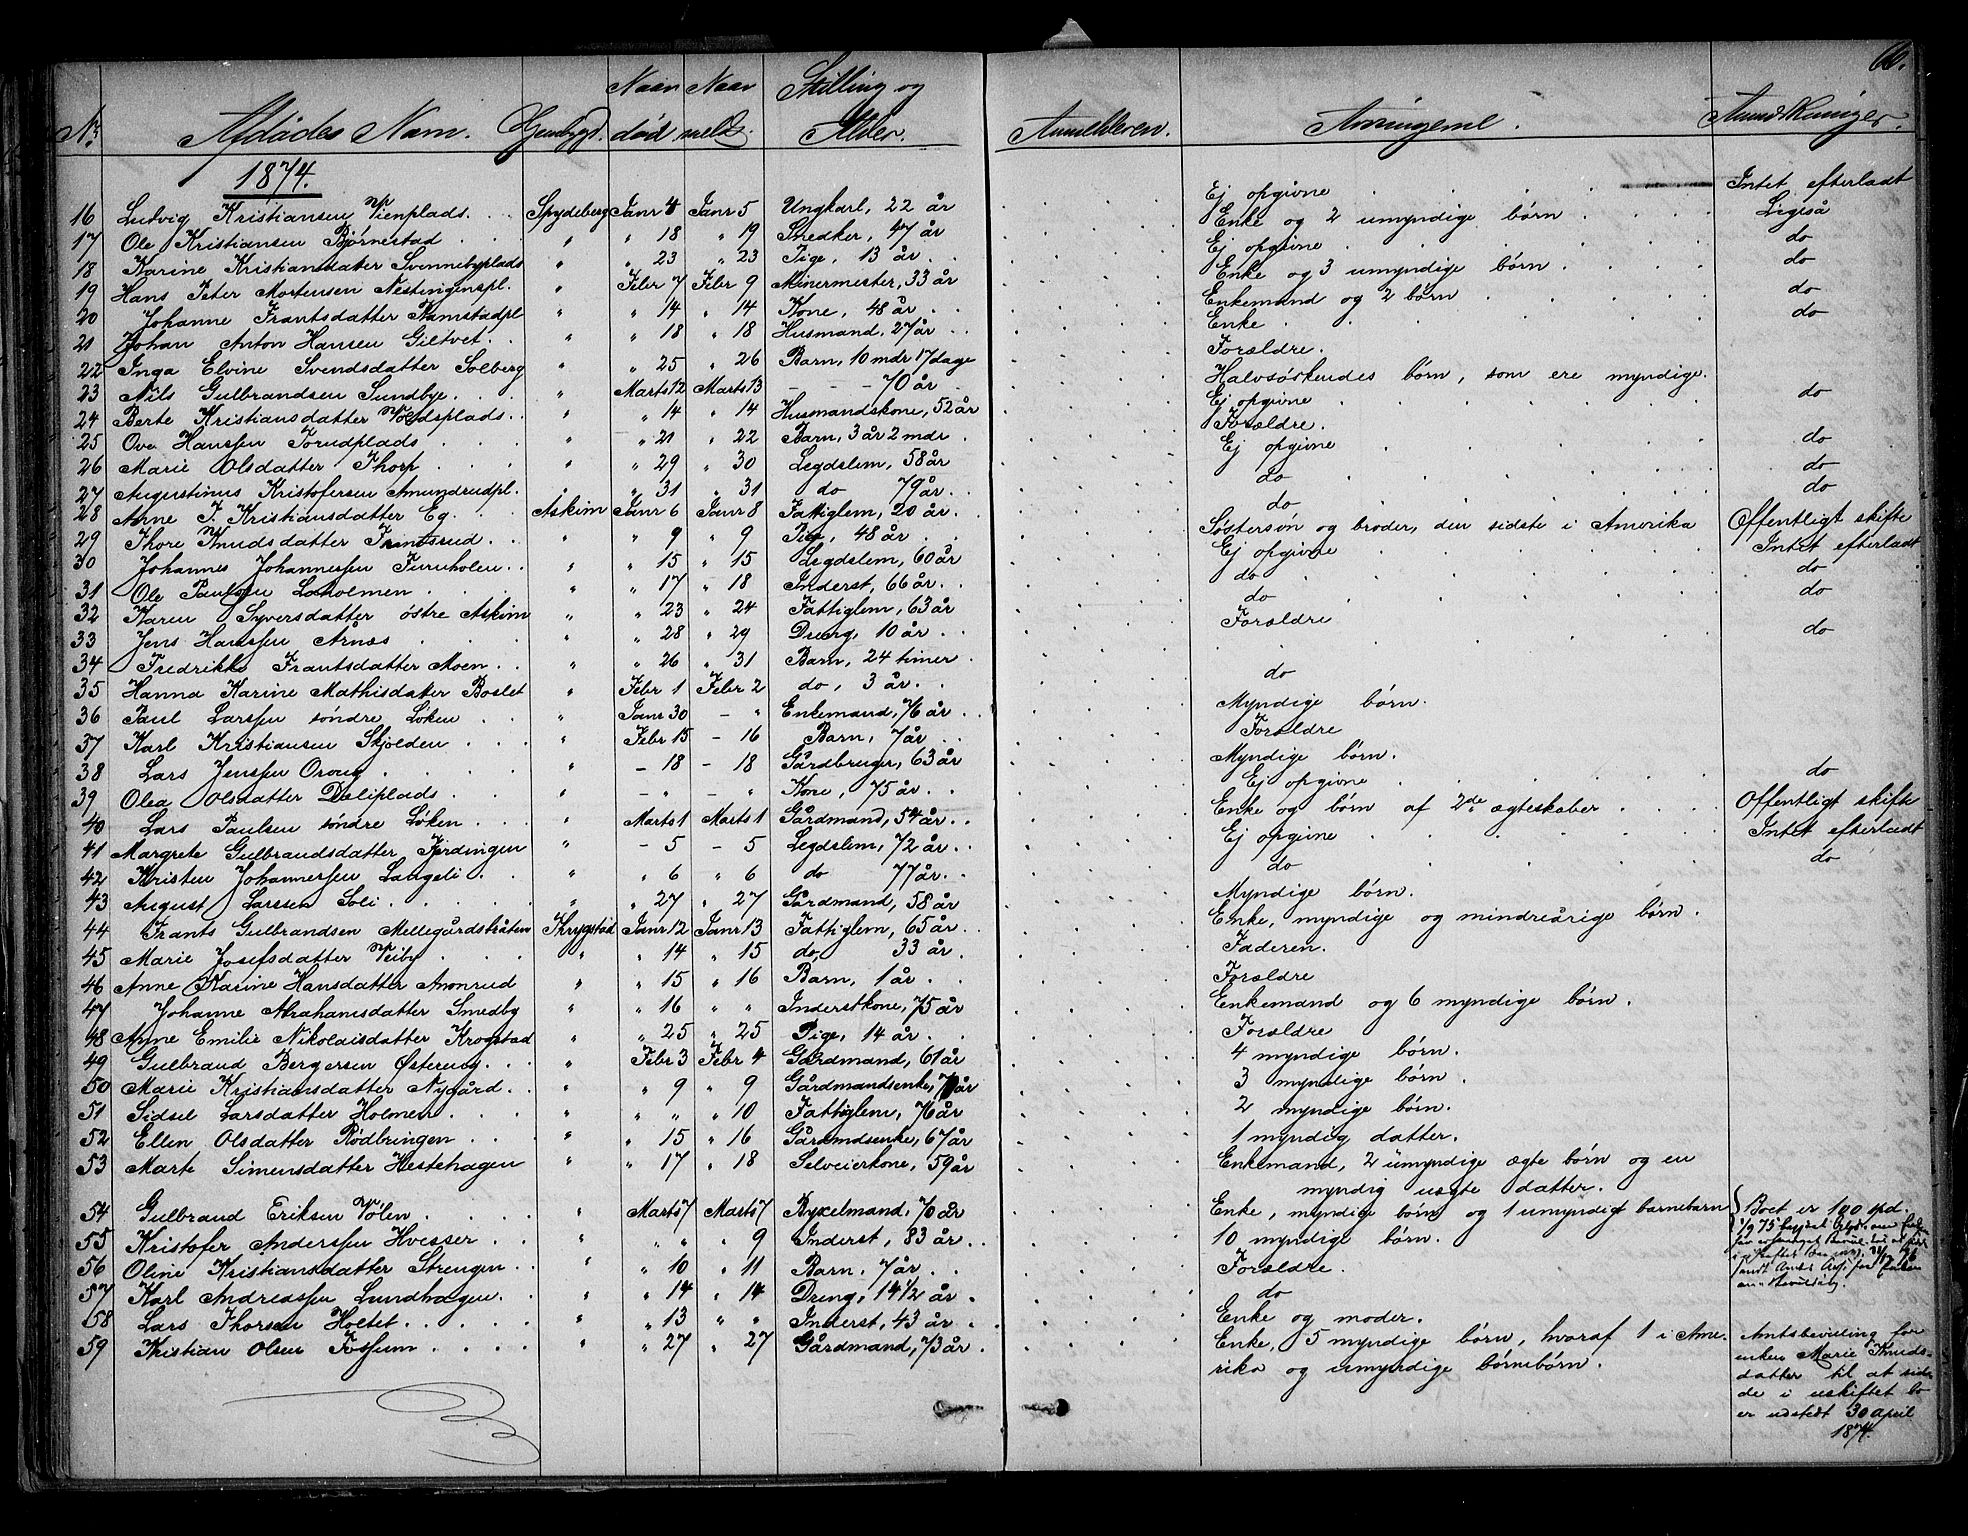 66.
Nr. Afdødes Navn. Naar død Naar meldt. Stilling og Alder. Anmelderen. Arvingerne. Anmærkninger.
1874.
16 Ludvig Kristiansen Vienplads. Spydeberg Janr 4 Janr 5 Ungkarl, 22 år Ej opgivne Intet efterladt
17 Ole Kristiansen Bjørnestad " " 18 " 19 Snedker, 47 år Enke og 2 umyndige børn Ligeså
18 Karine Kristiansdatter Svennebyplads " " 23 " 23 Pige, 13 år Ej opgivne do
19 Hans Peter Mortensen Nestingenspl. " Febr 7 Febr 9 Minermester, 33 år Enke og 3 umyndige børn do
20 Johanne Frantsdatter Kamstadpl " " 14 " 14 Kone, 48 år Enkemand og 2 børn do
21 Johan Anton Hansen Giltvet " " 18 " 18 Husmand, 27 år Enke do
22 Inga Elvine Svendsdatter Solberg " " 25 " 26 Barn, 10 mdr 17 dage Forældre.
23 Nils Gulbrandsen Sundbye " Marts 12 Marts 13 - - - 70 år Halvsøskendes børn, som ere myndige.
24 Berte Kristiansdatter Voldsplads " " 14 " 14 Husmandskone, 52 år Ej opgivne do
25 Ove Hanssen Torudplads " " 21 " 22 Barn, 3 år 2 mdr Forældre.
26 Marie Olsdatter Thorp " " 29 " 30 Legdslem, 58 år Ej opgivne do
27 Augustinus Kristofersen Amundrudpl. " " 31 " 31 do 79 år do do
28 Anne J. Kristiansdatter Eg. Askim Janr 6 Janr 8 Fattiglem, 20 år do do
29 Thore Knudsdatter Frantsrud " " 9 " 9 Pige, 48 år Søstersøn og broder, den sidste i Amerika Offentligt skifte
30 Johannes Johannessen Furuholen " " 15 " 15 Legdslem, 60 år Ej opgivne Intet efterladt
31 Ole Paulsen Laholmen " " 17 " 18 Inderst, 66 år do do
32 Karen Syversdatter østre Askim " " 23 " 24 Fattiglem, 63 år do do
33 Jens Hanssen Årnæs " " 28 " 29 Dreng, 10 år Forældre
34 Fredrikke Frantsdatter Moen " " 26 " 31 Barn, 24 timer do
35 Hanna Karine Mathisdatter Boslet " Febr 1 Febr 2 do, 3 år do
36 Paul Larssen søndre Løken " Janr 30 - " Enkemand, 76 år Myndige børn.
37 Karl Kristiansen Skjolden " Febr 15 - 16 Barn, 7 år Forældre
38 Lars Jenssen Oroug " - 18 - 18 Gårdbruger, 63 år Myndige børn.
39 Olea Olsdatter Daliplads " - " - " Kone, 75 år Ej opgivne do
40 Lars Paulsen søndre Løken " Marts 1 Marts 1 Gårdmand, 54 år Enke og børn af 2de ægteskaber Offentligt skifte
41 Margrete Gulbrandsdatter Fjerdingen " - 5 - 5 Legdslem, 72 år Ej opgivne Intet efterladt
42 Kristen Johannessen Langeli " " 6 " 6 do 77 år do do
43 August Larssen Soli " " 27 " 27 Gårdmand, 58 år Myndige børn.
44 Frants Gulbrandsen Mellegårdsbråten Thrygstad Janr 12 Janr 13 Fattiglem, 65 år Enke, myndige og mindreårige børn.
45 Marie Josefsdatter Veiby " " 14 " 15 do, 33 år Faderen.
46 Anne Karine Hansdatter Anonrud " " 15 " 16 Barn, 1 år Forældre
47 Johanne Abrahamsdatter Smedby " " 16 " " Inderstkone, 75 år Enkemand og 6 myndige børn.
48 Anne Emilie Nikolaisdatter Krogstad " " 25 " 25 Pige, 14 år Forældre
49 Gulbrand Bergersen Østereng " Febr 3 Febr 4 Gårdmand, 61 år 4 myndige børn.
50 Marie Kristiansdatter Nygård " " 9 " 9 Gårdmandsenke, år 3 myndige børn.
51 Sidsel Larsdatter Holmen " " " " 10 Fattiglem, 76 år 2 myndige børn.
52 Ellen Olsdatter Rødbringen " " 15 " 16 Gårdmdsenke, 67 år 1 myndig datter.
53 Marte Simensdatter Hestehagen " " 17 " 18 Selveierkone, 59 år Enkemand, 2 umyndige ægte børn og en
myndig uægte datter.
54 Gulbrand Eriksen Vølen " Marts 7 Marts 7 Bygselmand, 70 år Enke, myndige børn og 1 umyndigt barnebarn Boet er 100 spd.
55 Kristofer Anderssen Hvesser " " " " 9 Inderst, 83 år 10 myndige børn.
56 Oline Kristiansdatter Strengen " " 10 " 11 Barn, 7 år Forældre.
57 Karl Andreassen Lundhagen " " 14 " 14 Dreng, 14 1/2 år do
58 Lars Thorsen Holtet " " 13 " " Inderst, 43 år Enke og moder.
59 Kristian Olsen Fossum " " 27 " 27 Gårdmand, 73 år Enke, 5 myndige børn, hvoraf 1 i Ame-
rika og umyndige børnebørn.
Amtsbevilling for
enken Marie Knuds-
datter til at sid-
de i uskiftet bo
er udstedt 30 april
1874.